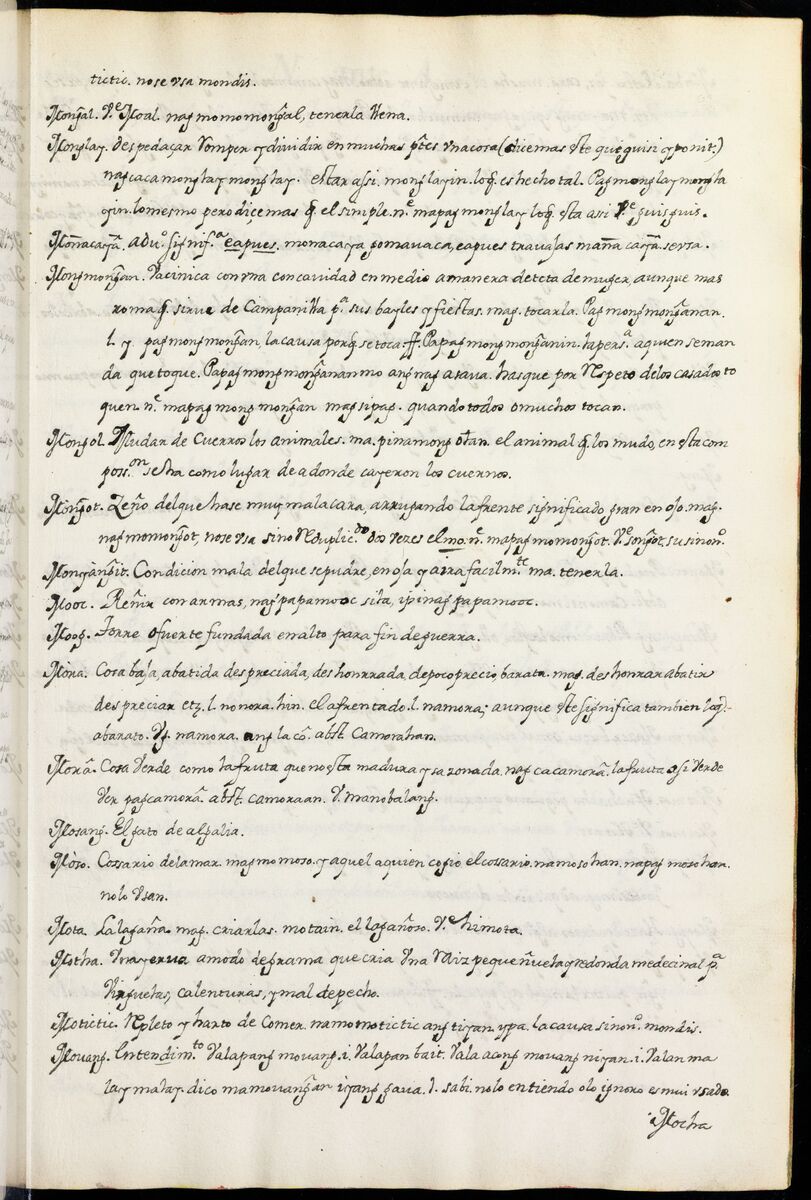 tictic. nose vsa mondis.
Mong̃al. Ve Moal. nag momomong̃al, tenerla llena.
Monglay. despedaçar Romper y dividir en muchas ptes vna cosa (dice mas este que quisi y ponit.)
nagcaca monglay monglay. estar assi. monglayin. loq̃ es hecho tal. Pag monglay mongla
yin. lo mesmo pero diçe mas q̃ el simple. ne. mapag monglay loq̃ esta asi Ve guisguis.
Monacaya. aduo. signifca eapues. monacaya gomavaca, eapues travajas mana caya. sersa.
Mongmong̃an. Vacinica con vna concavidad en medio a manera de teta de muger, aunque mas
roma q̃ sirve de Campanilla pa sus bayles y fiestas. mag. tocarla. Pag mongmong̃anan.
l. y pagmongmong̃an, la causa porq̃ se toca. ff. Papag mongmong̃anin. la persa. a quien seman
da que toque. Papagmongmong̃anan mo ang nag asava. has que por Respeto delos casados to
quen. ne. mapag mong mong̃an mag sipag. quando todos o muchos tocan.
Mongol. Mudar de Cuernos los animales. ma. pinamong olan. el animal q̃ los mudo, en esta com
posson. se sta como lugar de adonde cayeron los cuernos.
Mong̃ot. Zeño del que hase muy mala cara, arrugando la frente significado gran enojo. mag.
nagmomong̃ot, nose vsa sino Reduplicdo. dos veces el mo. ne. mapagmomong̃ot. Ve song̃ot. su sinono.
Mongang̃it. Condicion mala del que se pudre, enoja y aira facilmte. ma. tenerla.
Mooc. Reñir con armas, nagpapamooc sila, ipinag papamooc.
Moog. Torre o fuerte fundada en alto para fin de guerra.
Mora. Cosa baja, abatida despreciada, deshonrrada, de poco precio, barata. mag. deshonrar abatir
despreciar etz. l. no nora. hin. el afrentado. l. namora; aunque este significa tambien loq̃.
abarato. Vg. namora ang laco. abst. Camorahan.
Mora. Cosa Verde como la fruta que no esta madura y sazonada. nag cacamora. la fruta asi Verde
Ver pagcamora. abst. camoraan. V. manobalang.
Mosang. El gato de algalia.
Moso. Cossario dela mar. mag momoso. y aquel a quien cogio el cossario. namosohan. napag mosohan.
nolo Vsan.
Mota. La lagaña. mag. criarlas. motain. el lagañoso. Ve himota.
Motha. Vna yerva a modo de grama que cria Vna Raiz pequeñuela y redonda medecinal pa
Virguelas, calenturas, y mal de pecho.
Motictic. Repleto y harto de Comer. namomotictic ang tiyan. ypa. la causa sinono. mondis.
Mouang. Entendimto. Valapang mouang. i. Valapan bait. Vala acong mouang niyan. i. Valan ma
lay malay. dico mamovang̃an iyang gava. l. sabi. nolo entiendo olo ignoro es mui vsado.
Mocha